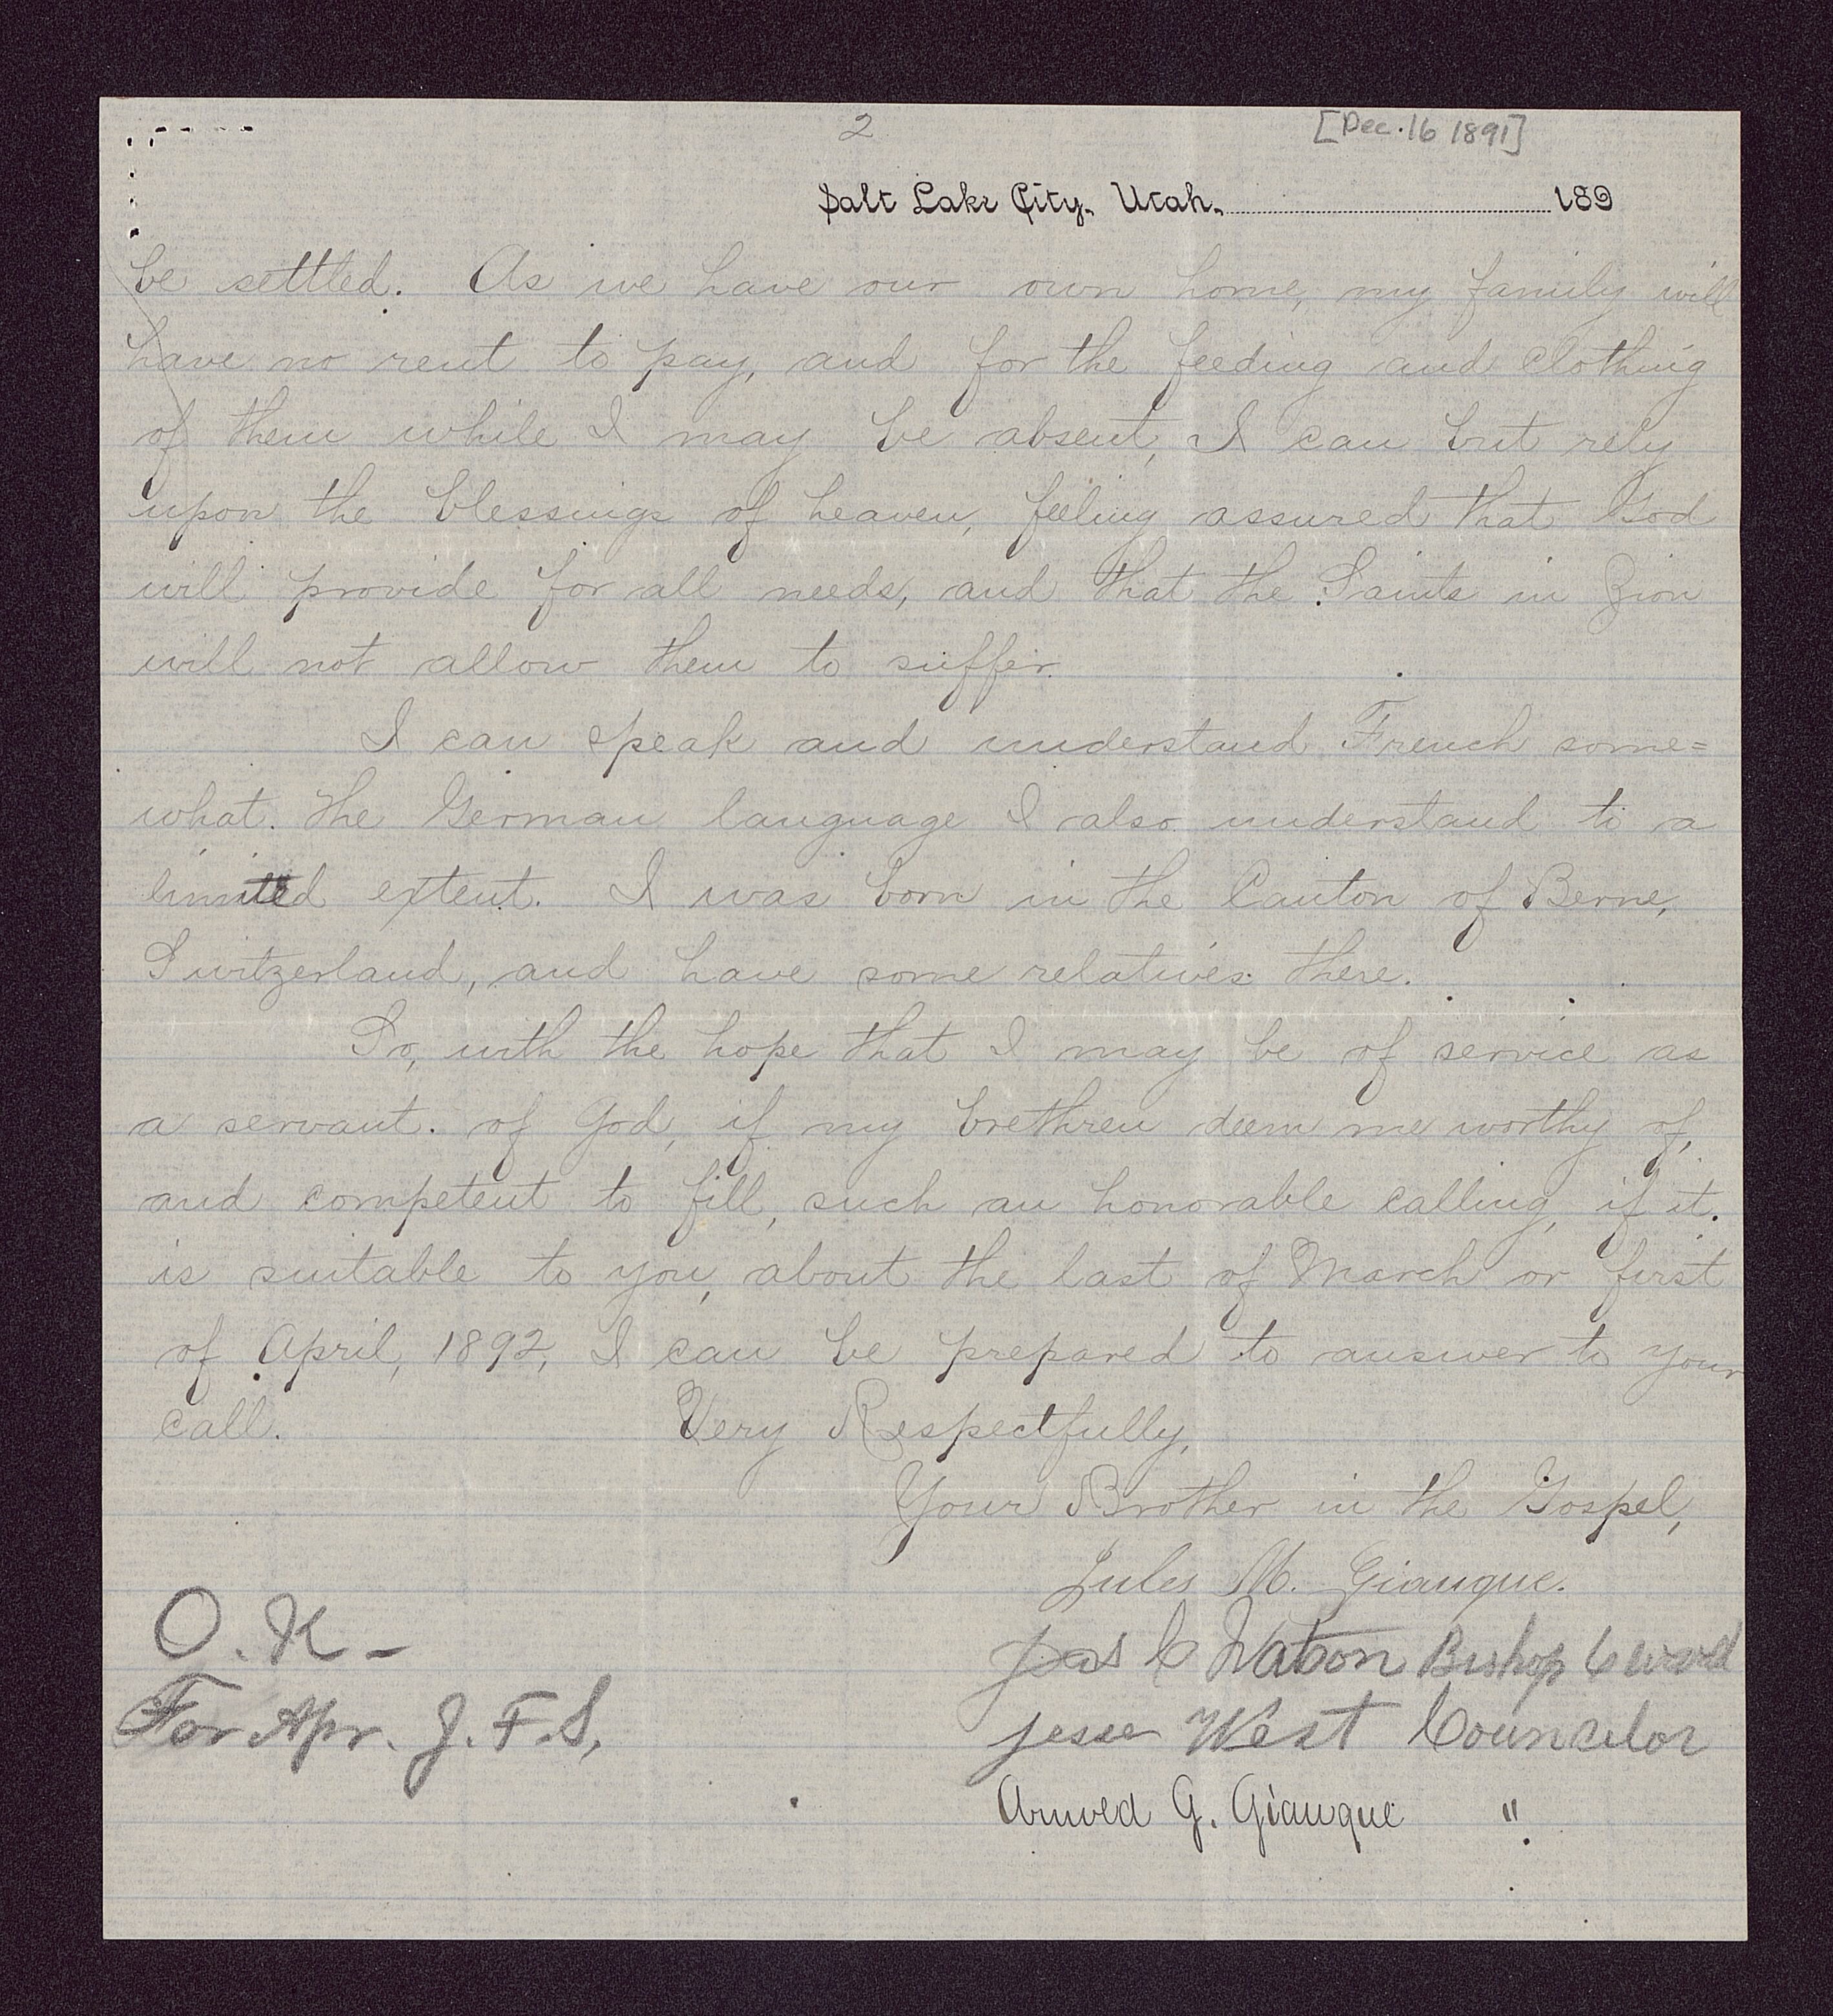 2
[Dec. 16 1891]
Salt Lake City, Utah, 189
be settled. As we have our own home, my family will
have no rent to pay, and for the feeding and clothing
of them while I may be absent, I can but rely
upon the blessings of heaven, feeling assured that God
will provide for all needs, and that the Saints in Zion
will not allow them to suffer.
I can speak and understand French some=
what. The German language I also understand to a
limited extent. I was born in the Canton of Berne,
Switzerland, and have some relatives there.
So, with the hope that I may be of service as
a servant of God, if my brethren deem me worthy of,
and competent to fill, such an honorable calling, if it
is suitable to you, about the last of March or first
of April, 1892, I can be prepared to answer to your
call. Very Respectfully,
Your Brother in the Gospel,
Jules M. Giauque.
Jas C Watson Bishop 6 ward
Jesse West Councelor
Arnold G. Giauque "
O. K –
For Apr. J. F. S,